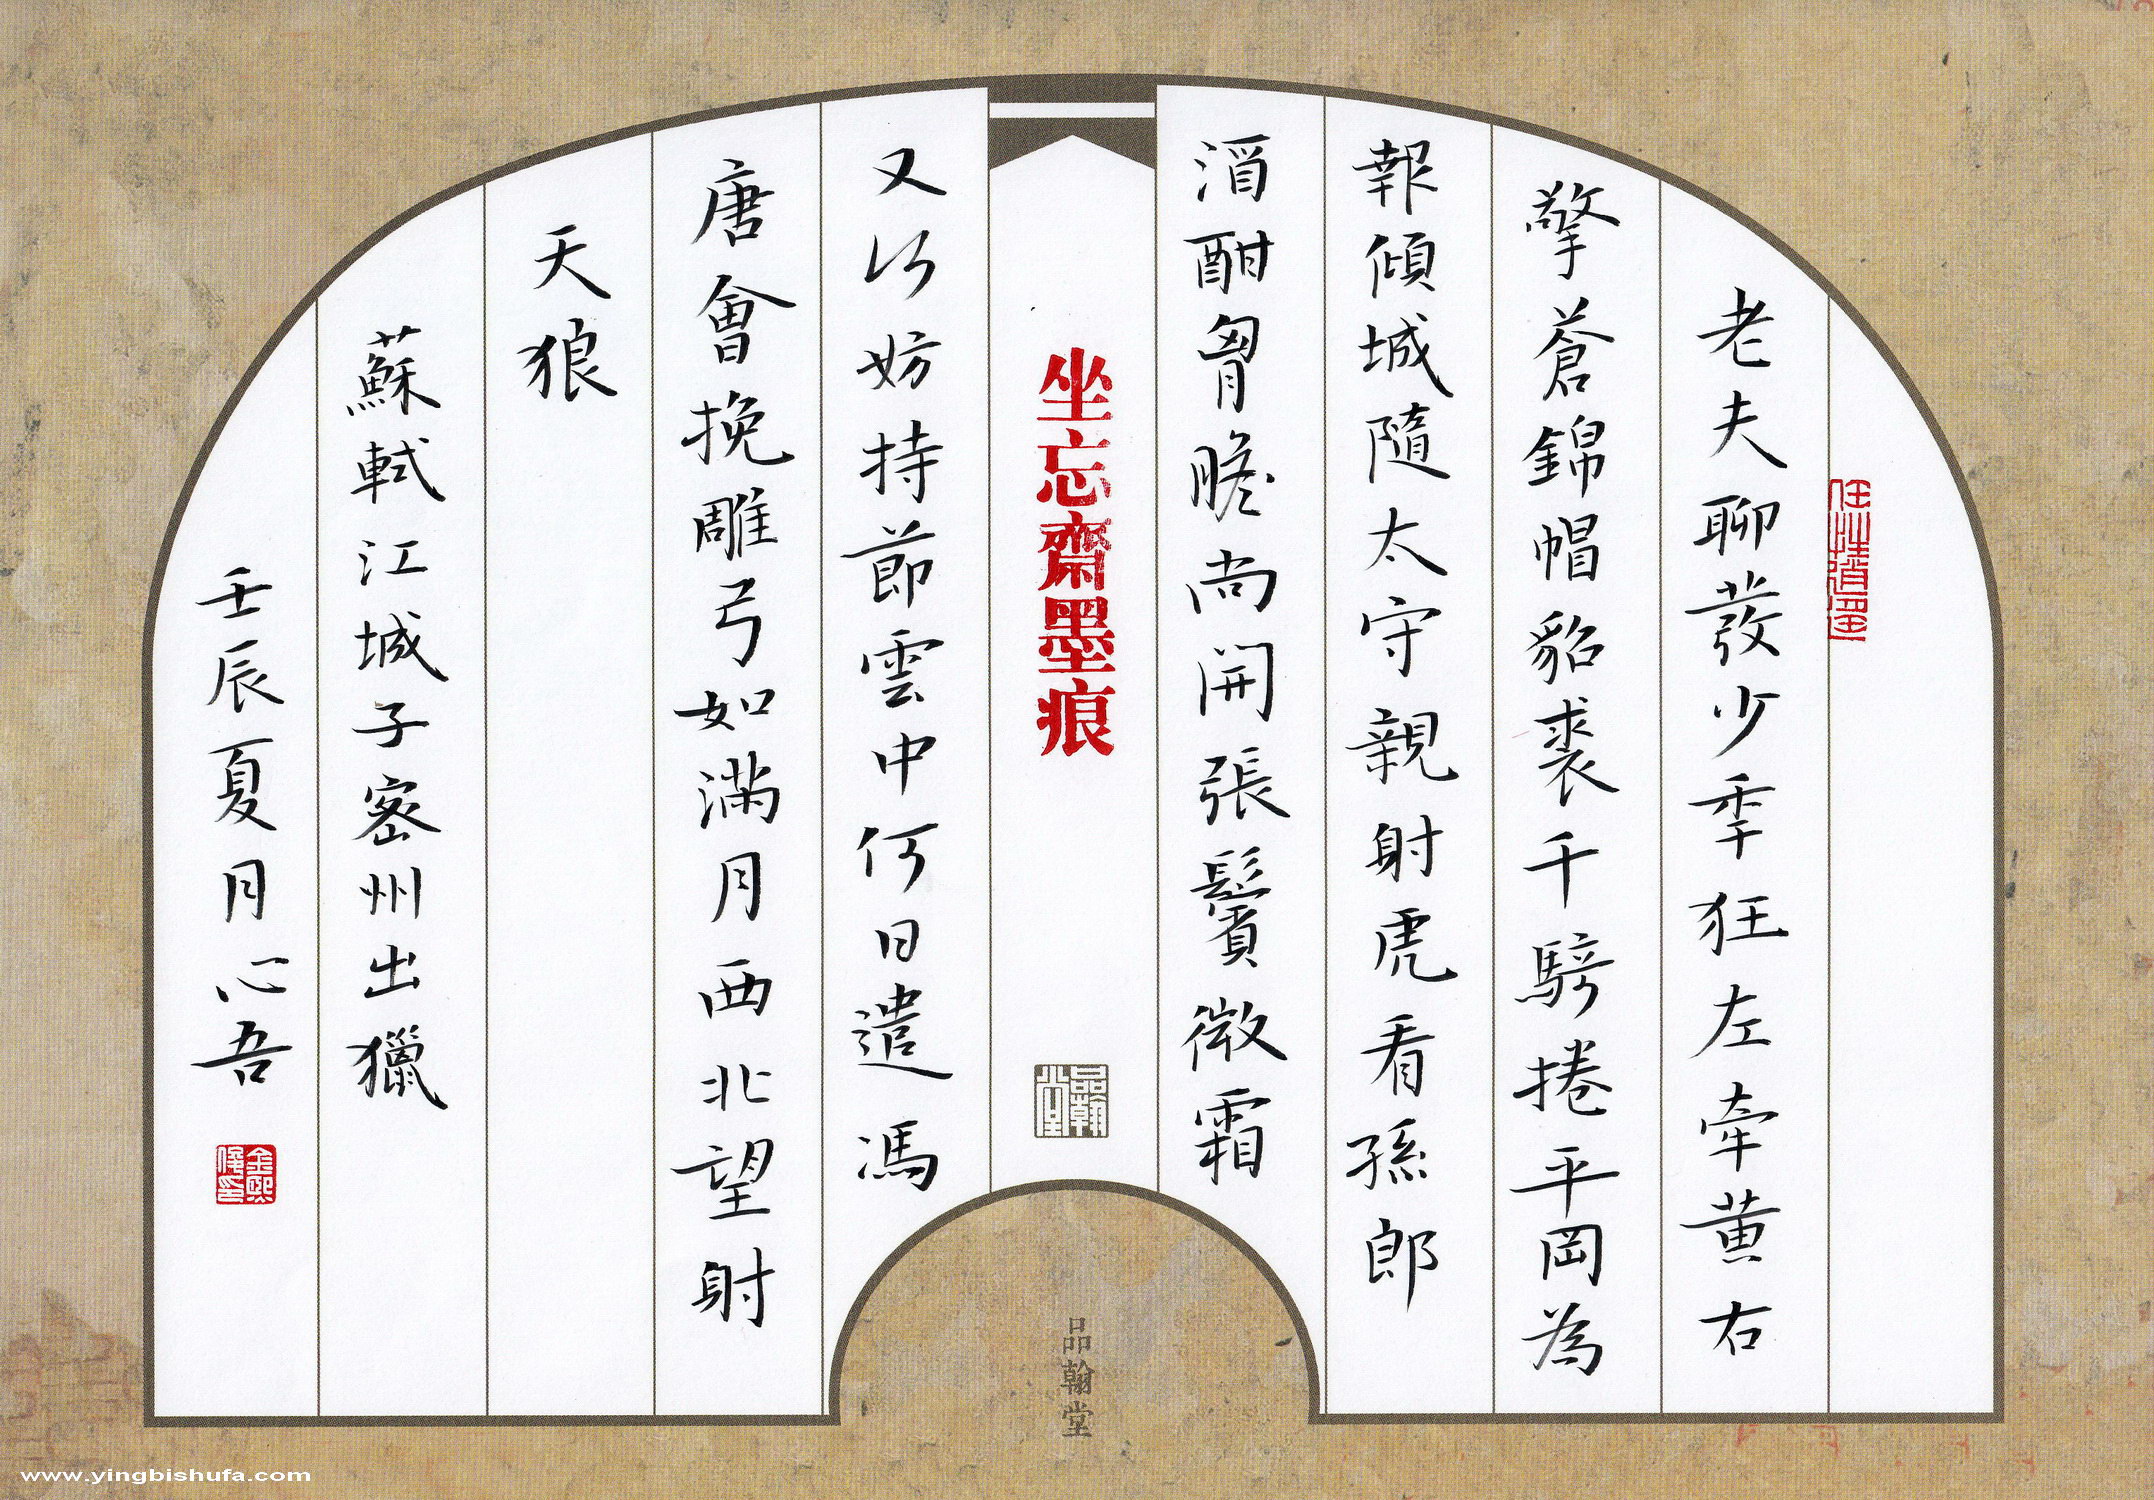 老夫聊發少秊狂左牽黄右
擎蒼錦帽貂裘千騎捲平岡為
報傾城隨太守親射虎看孫郎
酒酣胷膽尚開張鬢微霜
坐忘齋墨痕
品翰堂
品翰堂
又何妨持節雲中何日遣馮
唐會挽雕弓如滿月西北望射
天狼
蘇軾江城子密州出獵
壬辰夏月心吾
www.yingbishufa.com